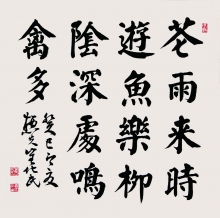 花雨来時
遊魚樂柳
陰深處鳴
禽多
癸巳之夏